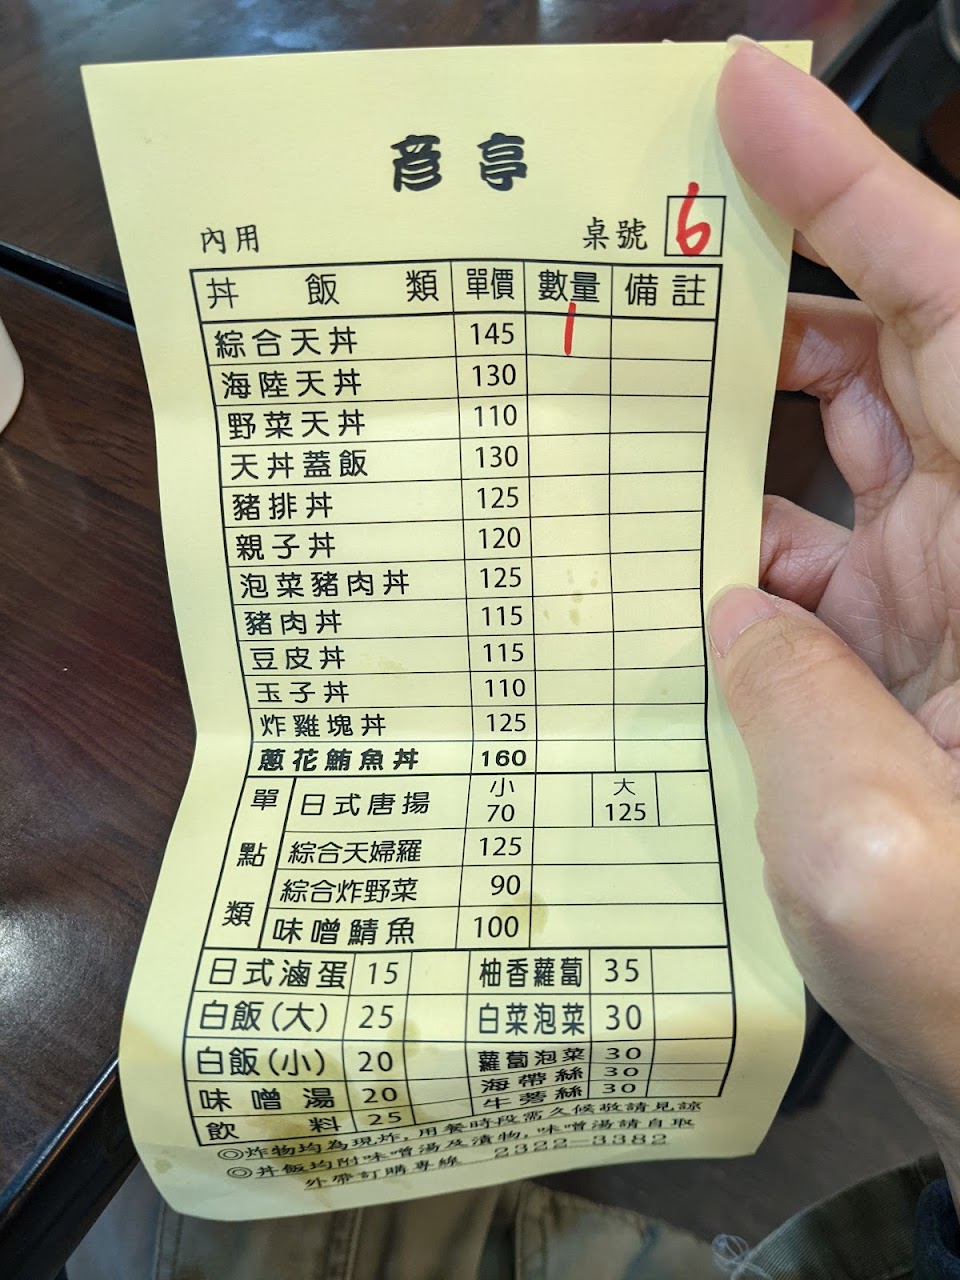 彦亭
內用 桌號 6
丼飯類 單價 數量 備註
綜合天丼 145 1
海陸天丼 130
野菜天丼 110
天丼蓋飯 130
豬排丼 125
親子丼 120
泡菜豬肉丼 125
豬肉丼 115
豆皮丼 115
玉子丼 110
炸雞塊丼 125
蔥花鮪魚丼 160
單點類
日式唐揚 小 70 大 125
綜合天婦羅 125
綜合炸野菜 90
味噌鯖魚 100
日式滷蛋 15 柚香蘿蔔 35
白飯(大) 25 白菜泡菜 30
白飯(小) 20 蘿蔔泡菜 30
海帶絲 30
味噌湯 20 牛蒡絲 30
飲料 25
◎炸物均為現炸,用餐時段需久候敬請見諒
◎丼飯均附味噌湯及漬物,味噌湯請自取
外帶訂購專線 2322-3382